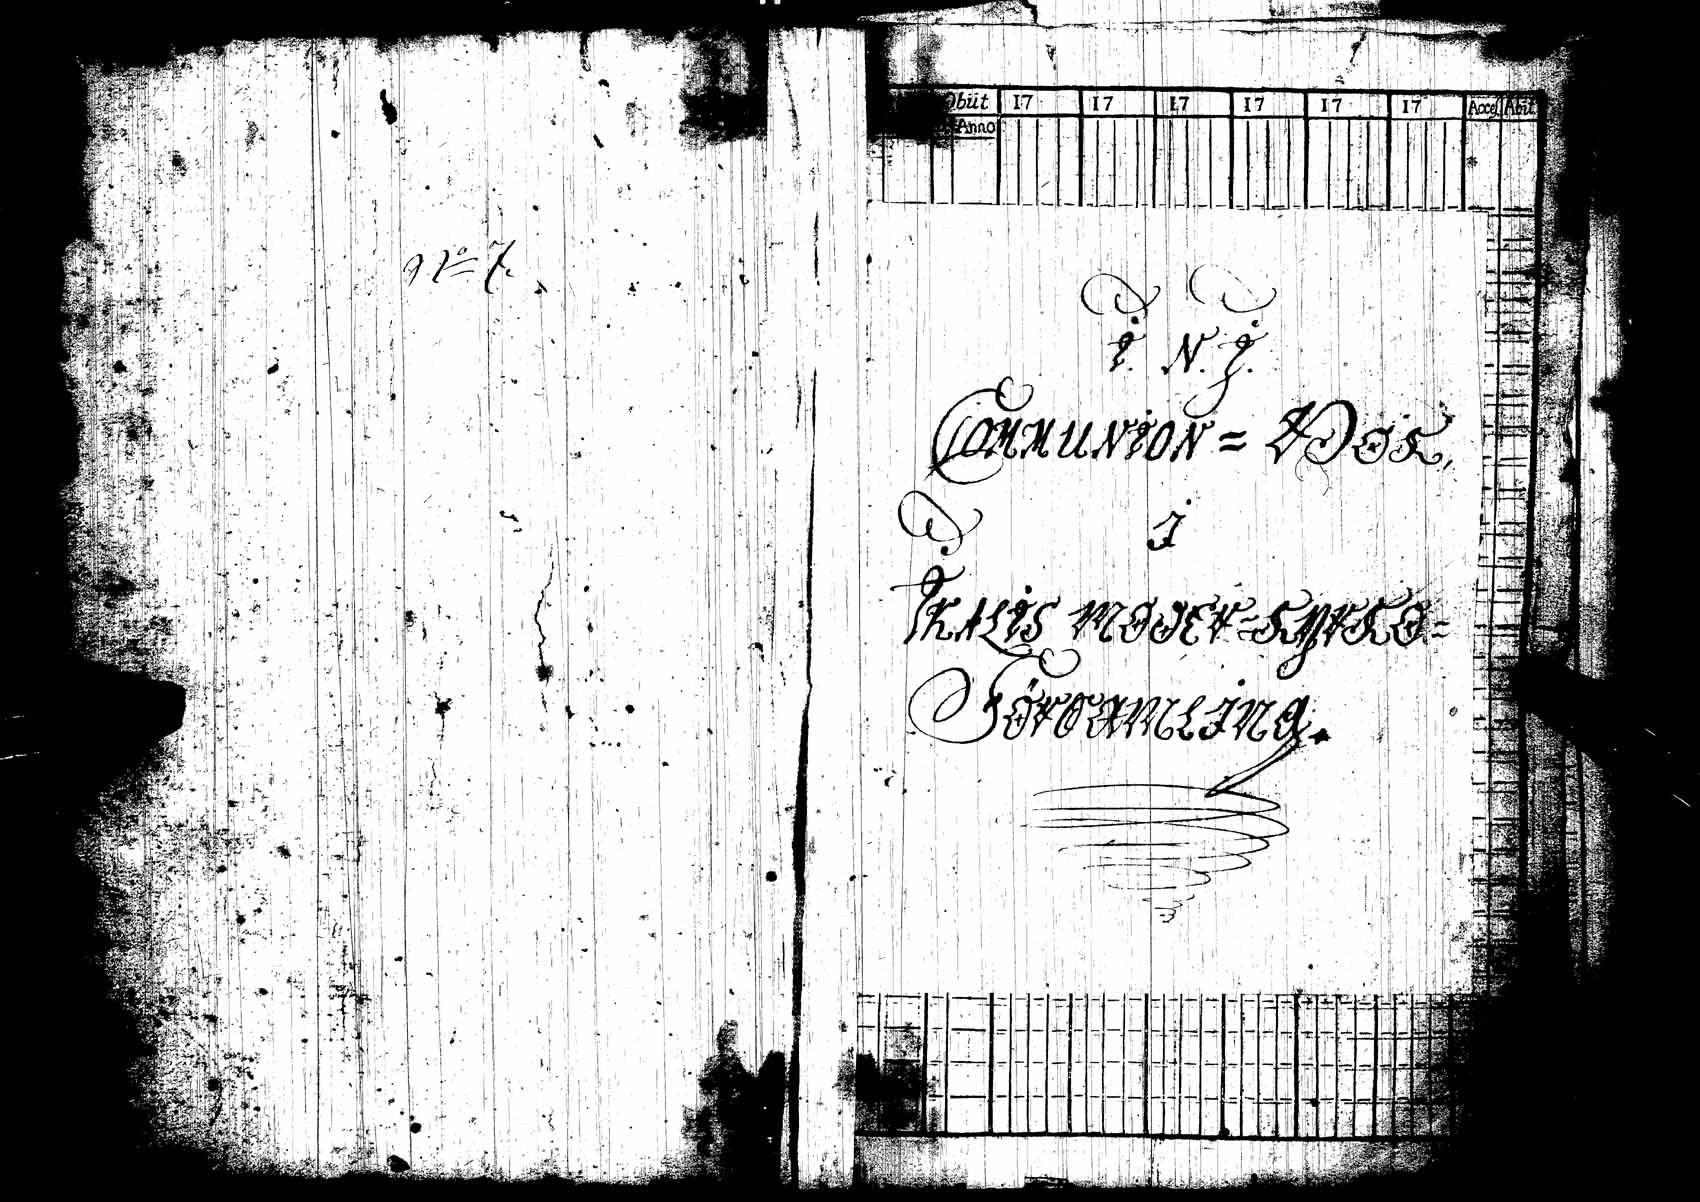 N° 7.
Obiit 17 17 17 17 17 17 Acceſ. Abit
Anno
I. N. J.
COMMUNION = Bok,
I
Kralis Moder=Kyrko=
Församling.